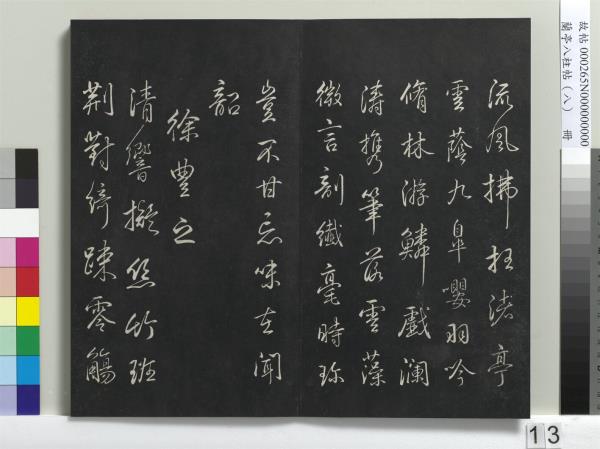 流風拂枉渚亭
雲蔭九皐嚶羽吟
脩林游鱗戲瀾
濤攜筆落雲藻
微言剖纖毫時珎
豈不甘忘味在聞
韶
徐豐之
清響擬絲竹班
荊對綺疎零觴
故帖 000265N000000000
蘭亭八柱帖(八) 冊
13